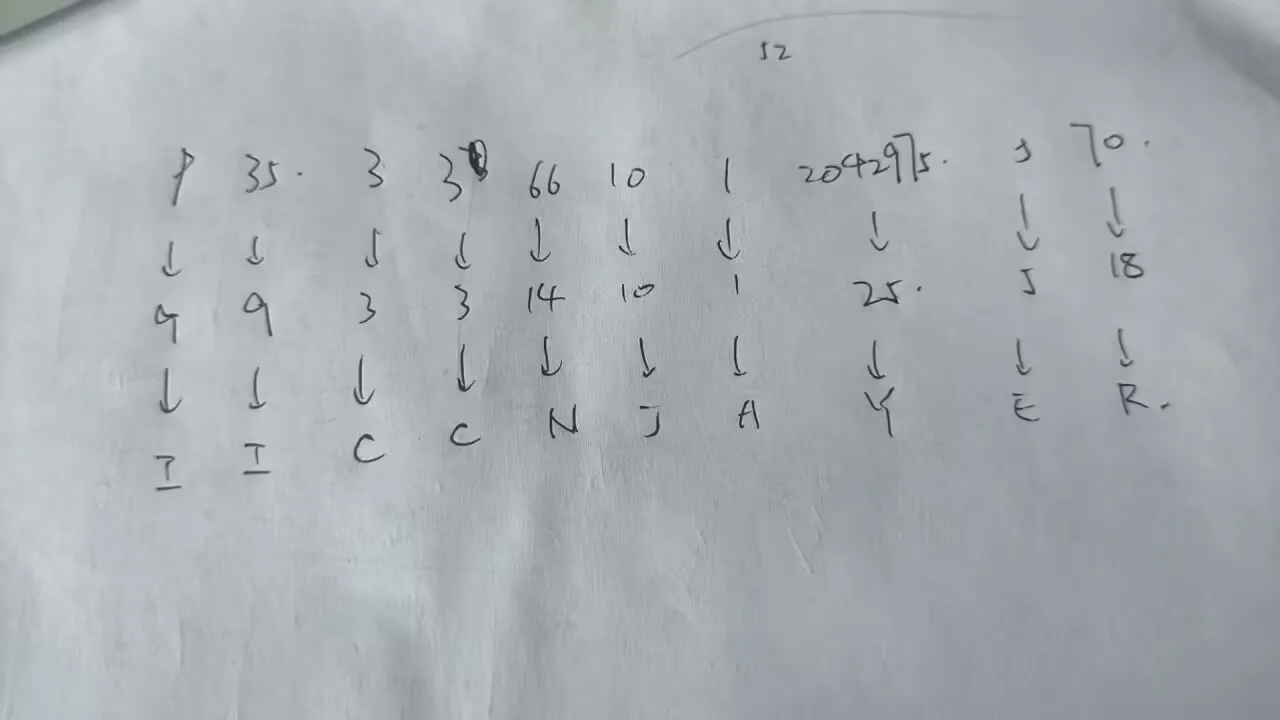 52
9 35. 3 3 66 10 1 2042975. 5 70.
↓ ↓ ↓ ↓ ↓ ↓ ↓ ↓ ↓ ↓
9 9 3 3 14 10 1 25. 5 18
↓ ↓ ↓ ↓ ↓ ↓ ↓ ↓ ↓ ↓
I I C C N J A Y E R.